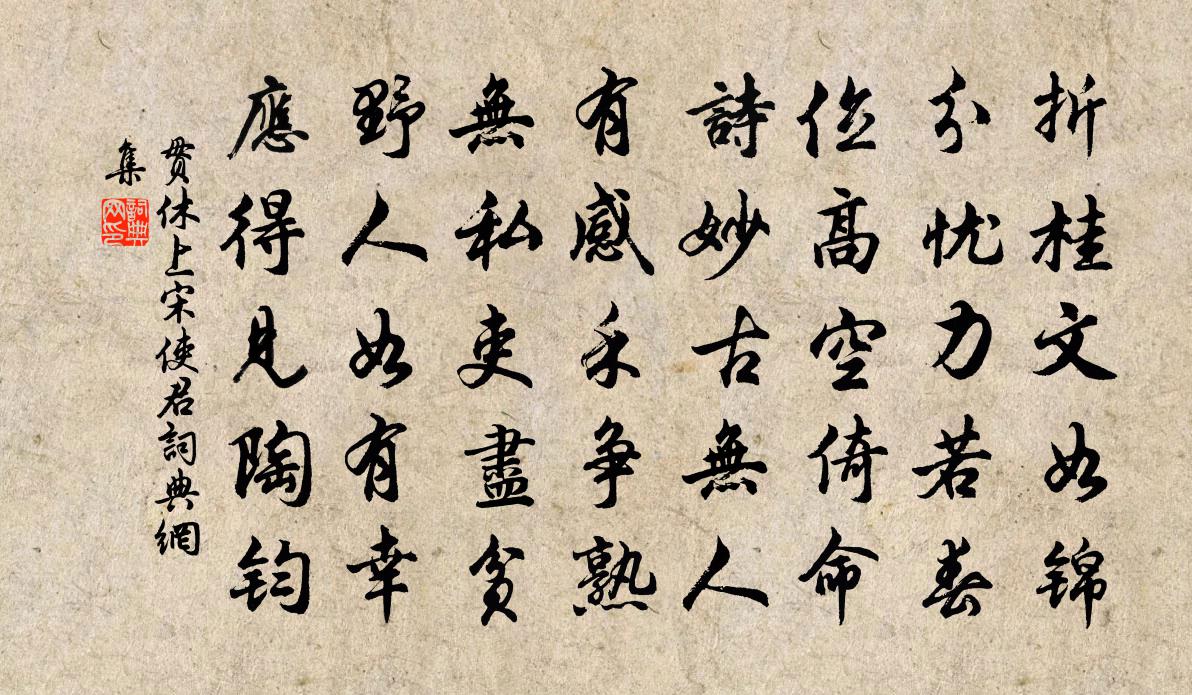 折桂文如锦
分忧力若春
位高空倚命
詩妙古無人
有感禾争熟
無私吏盡貧
野人如有幸
應得見陶钧
貫休上宋使君詞典網
集
詞典
网印